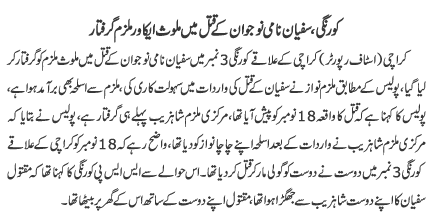 کورنگی، سفیان نامی نوجوان کے قتل میں ملوث ایک اور ملزم گرفتار
کراچی (اسٹاف رپورٹر) کراچی کے علاقے کورنگی 3 نمبر میں سفیان نامی نوجوان کے قتل میں ملوث ملزم کو گرفتار کر
لیا گیا، پولیس کے مطابق ملزم نواز نے سفیان کے قتل کی واردات میں سہولت کاری کی، ملزم سے اسلحہ بھی برآمد ہوا ہے،
پولیس کا کہنا ہے کہ قتل کا واقعہ 18 نومبر کو پیش آیا تھا، مرکزی ملزم شاہزیب پہلے ہی گرفتار ہے، پولیس نے بتایا کہ
مرکزی ملزم شاہزیب نے واردات کے بعد اسلحہ اپنے چاچا نواز کو دیا تھا، واضح رہے کہ 18 نومبر کو کراچی کے علاقے
کورنگی 3 نمبر میں دوست نے دوست کو گولی مار کر قتل کردیا تھا۔ اس حوالے سے ایس ایس پی کورنگی کا کہنا تھا کہ مقتول
سفیان کا اپنے دوست شاہزیب سے جھگڑا ہوا تھا، مقتول اپنے دوست کے ساتھ اس کے گھر پر بیٹھا تھا۔